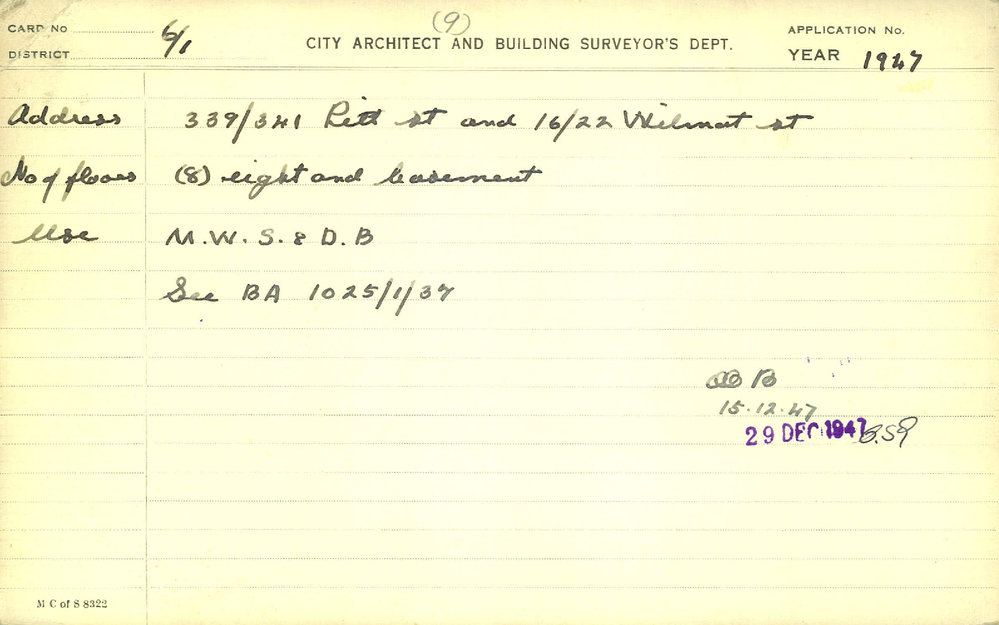 (9)
CARD No
6/1
CITY ARCHITECT AND BUILDING SURVEYOR'S DEPT.
APPLICATION No.
DISTRICT
YEAR 1947
Address 339/341 Pitt st and 16/22 Wilmot st
No of floors (8) eight and basement
Use M.W.S. & D.B
See BA 1025/1/37
B
15.12.47
29 DEC 1947
M C of S 8322